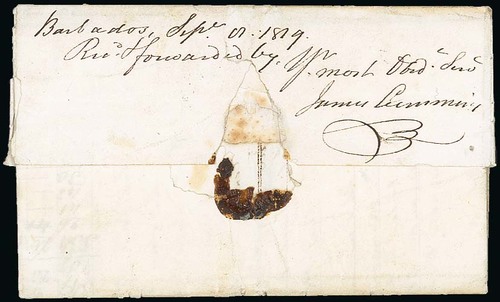 Barbados, Sept 8. 1819.
Recd & forwarded by, Yr. most Obdt Servt
James Cummins